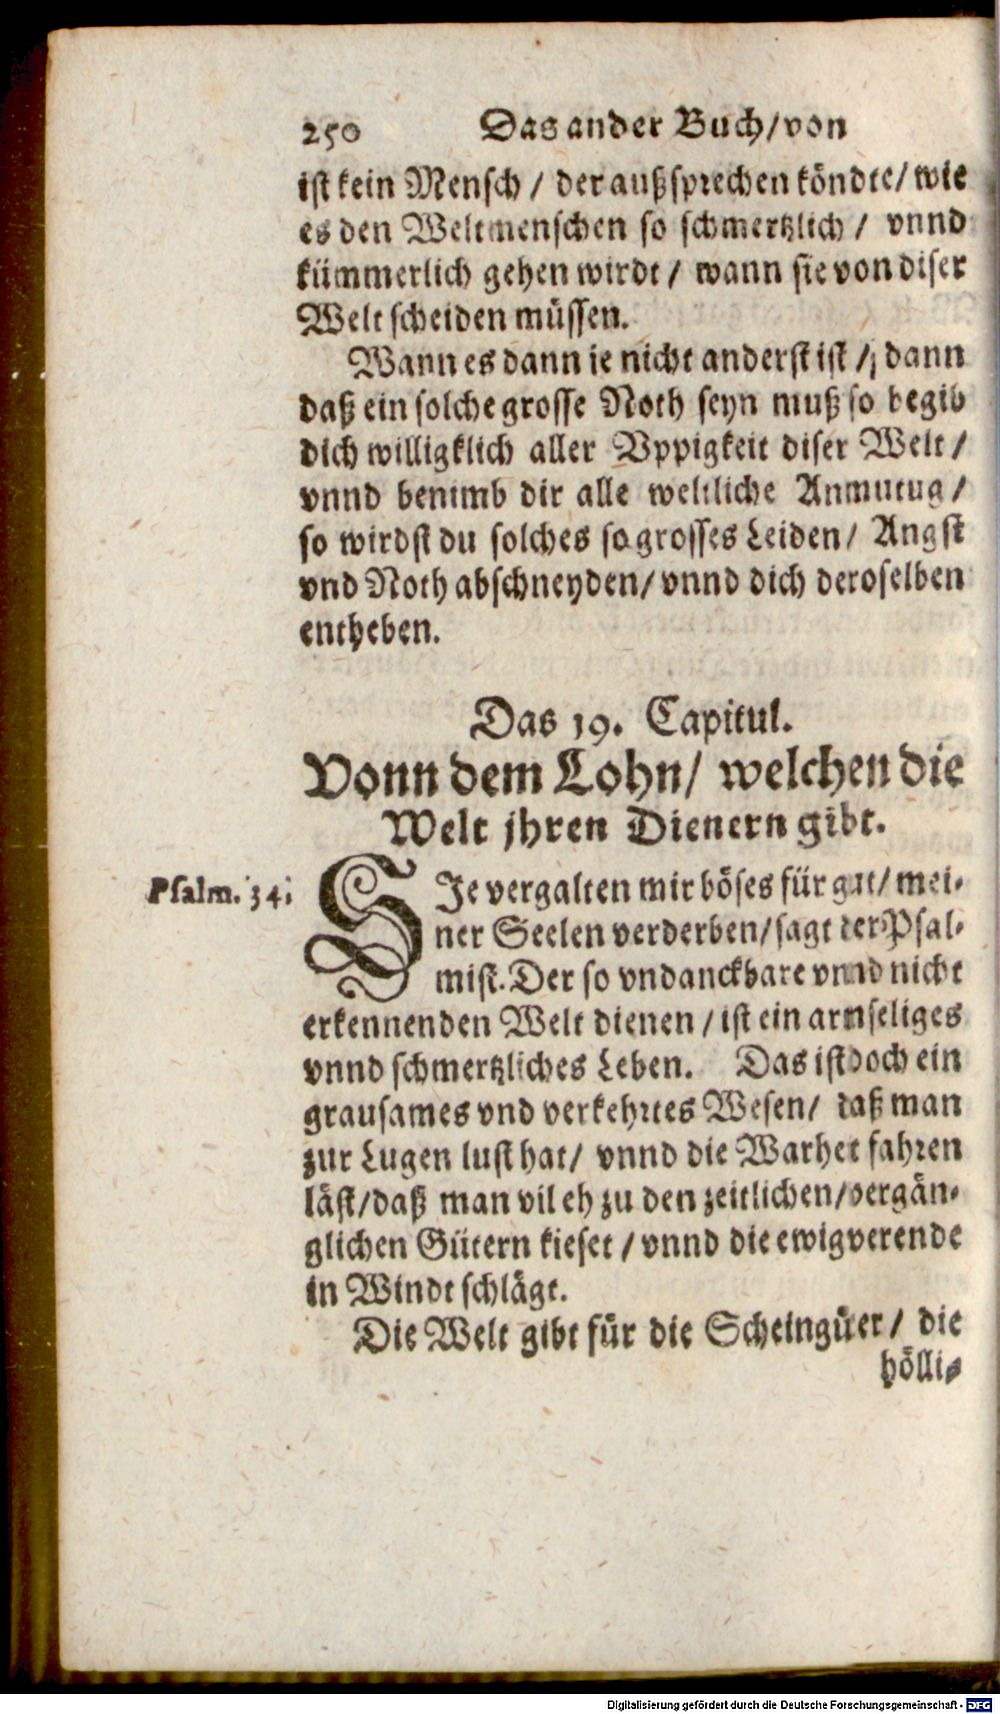 250 Das ander Buch/von
ist kein Mensch / der außsprechen köndte/ wie
es den Weltmenschen so schmertzlich / vnnd
kümmerlich gehen wirdt / wann sie von diser
Welt scheiden müssen.
Wann es dann je nicht anderst ist /; dann
daß ein solche grosse Noth seyn muß so begib
dich willigklich aller Vppigkeit diser Welt /
vnnd benimb dir alle weltliche Anmutug /
so wirdst du solches so grosses Leiden / Angst
vnd Noth abschneyden/ vnnd dich deroselben
entheben.
Das 19. Capitul.
Vonn dem Lohn/ welchen die
Welt jhren Dienern gibt.
Psalm. 34.
SJe vergalten mir böses für gut/ mei-
ner Seelen verderben/ sagt der Psal-
mist. Der so vndanckbare vnnd nicht
erkennenden Welt dienen / ist ein armseliges
vnnd schmertzliches Leben. Das ist doch ein
grausames vnd verkehrtes Wesen/ daß man
zur Lugen lust hat/ vnnd die Warhet fahren
läst/ daß man vil eh zu den zeitlichen/ vergän-
glichen Gütern kieset / vnnd die ewigverende
in Windt schlägt.
Die Welt gibt für die Scheingüter / die
hölli-
Digitalisierung gefördert durch die Deutsche Forschungsgemeinschaft - DFG